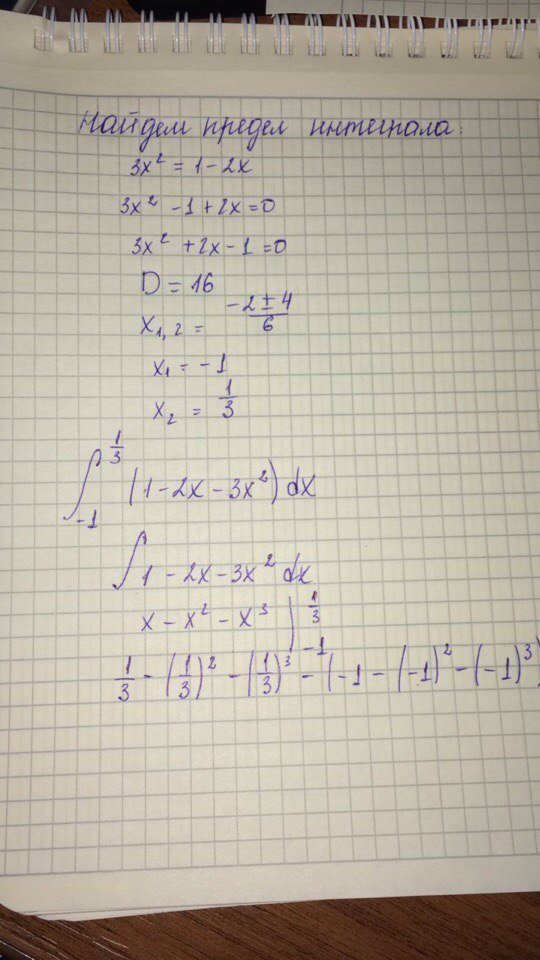 Найдем предел интеграла:
3x² = 1 - 2x
3x² - 1 + 2x = 0
3x² + 2x - 1 = 0
D = 16
x₁,₂ = (-2 ± 4)/6
x₁ = -1
x₂ = 1/3
∫₋₁^(1/3) (1 - 2x - 3x²) dx
∫ 1 - 2x - 3x² dx
x - x² - x³ |₋₁^(1/3)
1/3 - (1/3)² - (1/3)³ - (-1 - (-1)² - (-1)³)